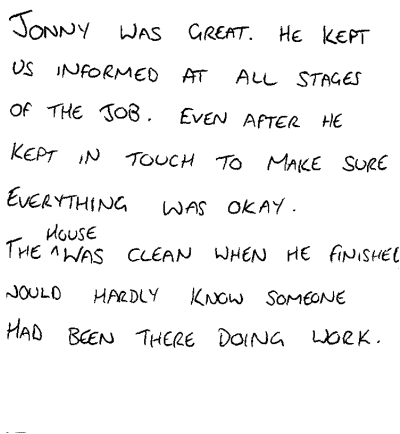 JONNY WAS GREAT. HE KEPT
US INFORMED AT ALL STAGES
OF THE JOB. EVEN AFTER HE
KEPT IN TOUCH TO MAKE SURE
EVERYTHING WAS OKAY.
THE HOUSE WAS CLEAN WHEN HE FINISHED
WOULD HARDLY KNOW SOMEONE
HAD BEEN THERE DOING WORK.